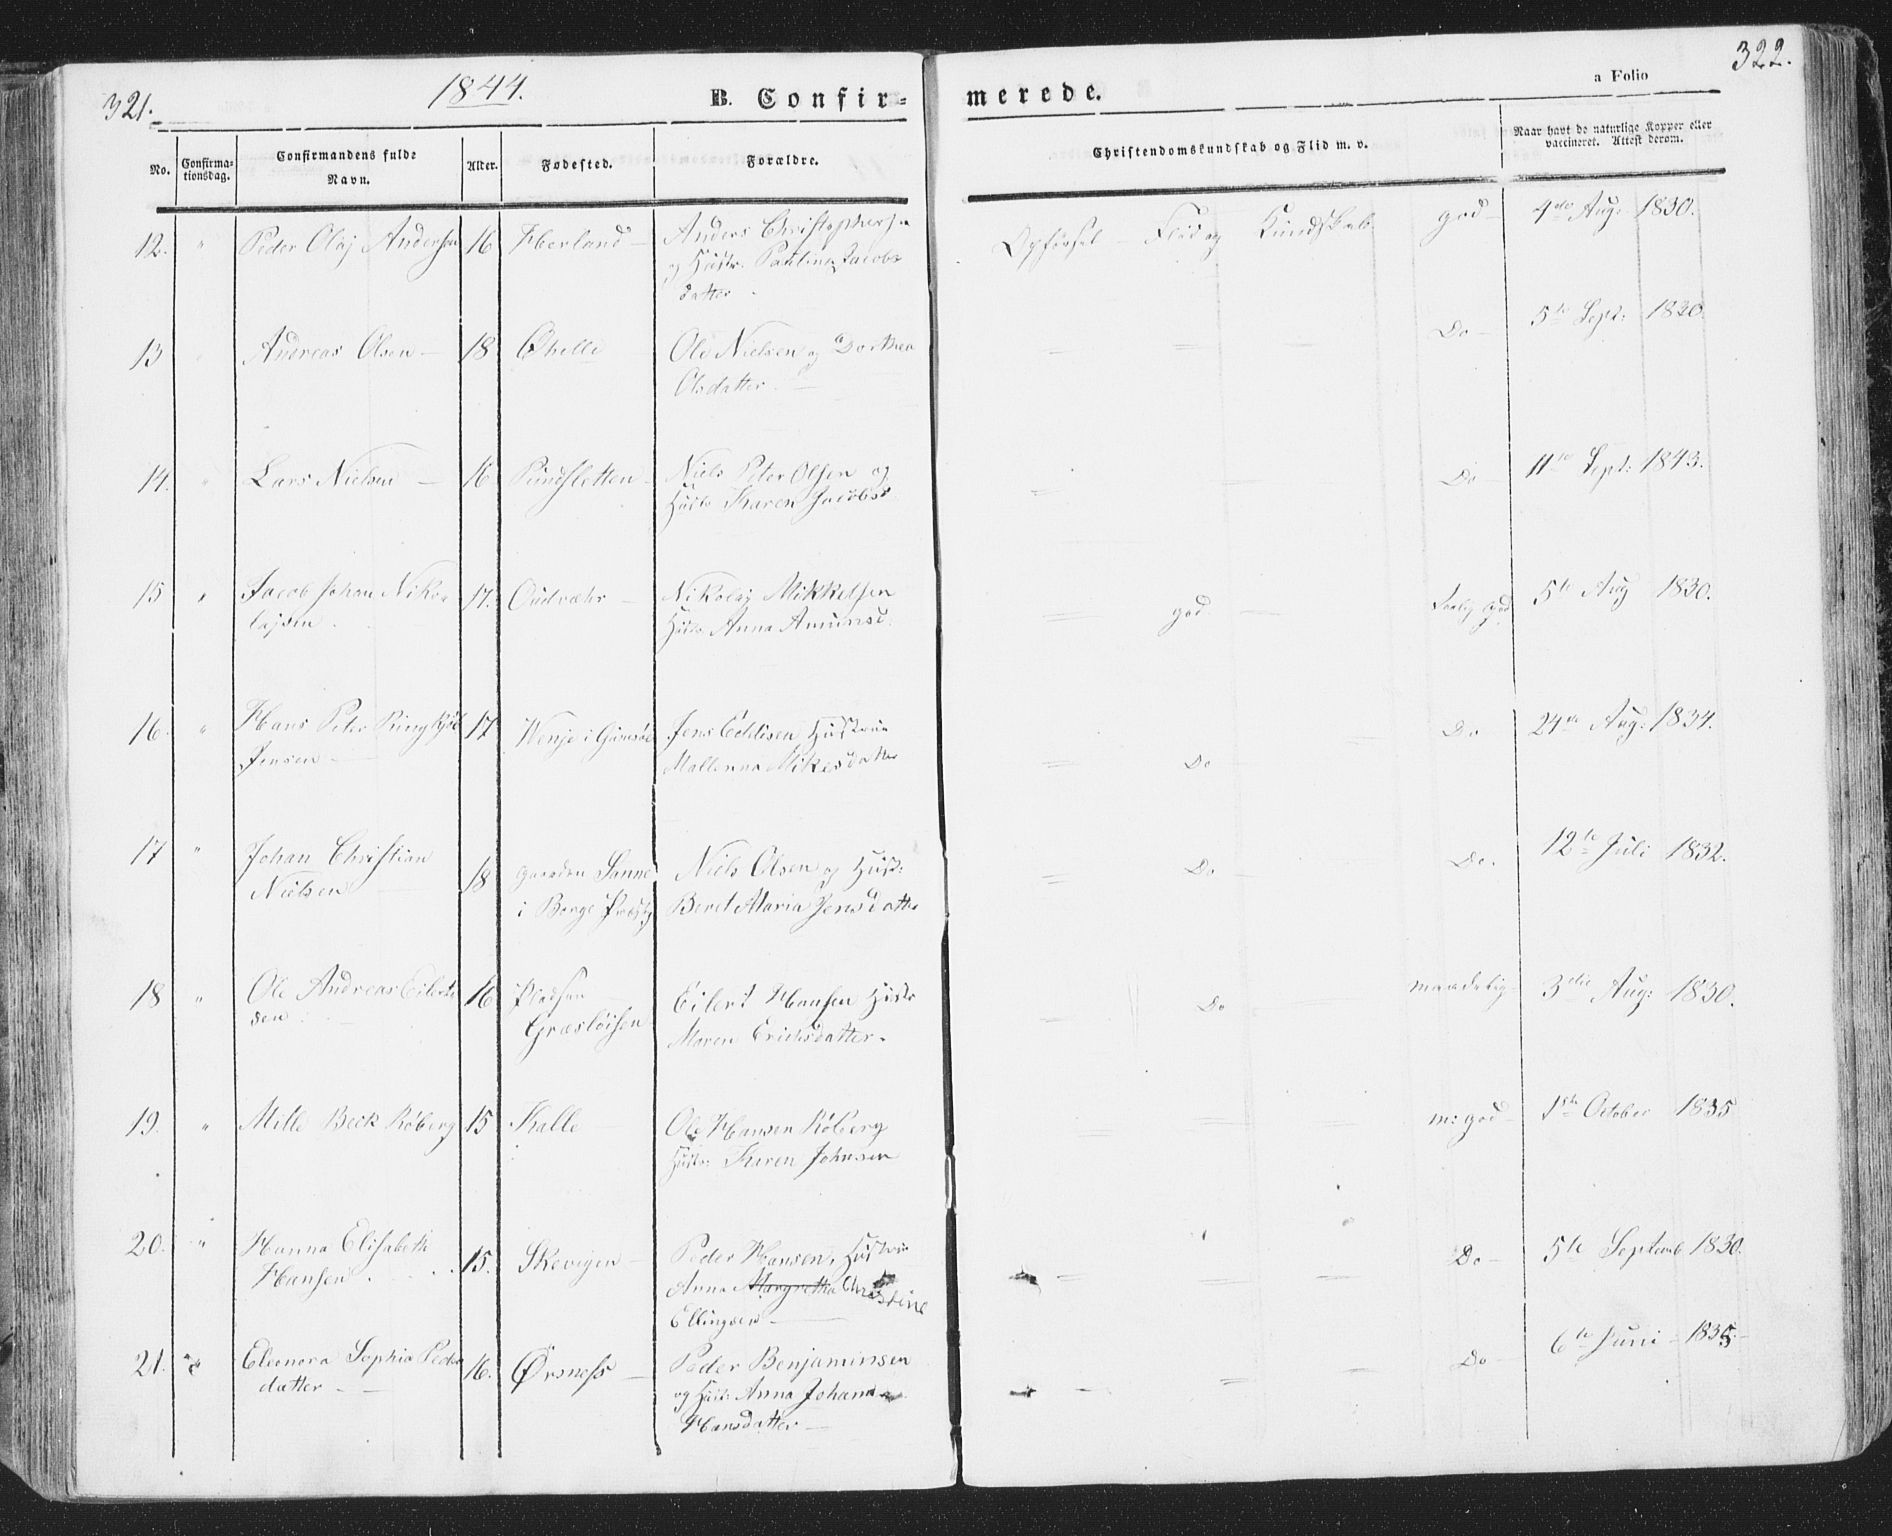 321.
1844.
B. Confir=
merede.
a Folio
322.
No.
Confirma-
tionsdag.
Confirmandens fulde
Navn.
Alder.
Fødested.
Forældre.
Christendomskundskab og Flid m. v.
Naar havt de naturlige Kopper eller
vaccineret. Attest derom.
12. " Peder Olaj Andersen 16 Anders Christophersen Opførsel - Flid og Kundskab god - 4de Aug: 1830.
og Hustr. Paulina Jacobs
datter
13 Andreas Olsen - 18 Ole Nielsen og Dorthea Do - 5te Sept: 1830.
Olsdatter. -
14. " Lars Nielsen - 16 Niels Peter Olsen og Do - 11te Sept: 1843.
Hust: Karen Jacobs
15 " Jacob Johan Niko- 17. Nikolaj Mikkelsen god - god 5te Aug 1830.
lajsen. Hust: Anna Amunsd:
16. " Hans Peter 17 Jens Hustrue Do Do 24de Aug: 1834.
Jensen -
17 " Johan Christian 18 gaarden Sanne Niels Olsen og Hust: Do - Do. 12te Juli 1832.
Nielsen - i Borge Beret Maria Jensdatter
18 " Ole Andreas Eilert- 16 Pladsen Eilert Hansen Hustr Do maadelig - 3die Aug: 1830.
sen. Maren Erichsdatter.
19. " Mille Beck Røberg 15 Kalle Ole Hansen Røberg m: god - 1ste October 1835
Hustr: Karen Johnsen
20. " Hanna Elisabeth 15. Skevigen - Peder Hansen, Hustrue Do - 5te Septemb 1830.
Hansen. Anna Margretha Christine
Ellingsen -
21. " Eleonora Sophia Peder 16. Ørsness - Peder Benjaminsen Do - 6te Juni - 1835 -
datter - og Hust: Anna Johanna
Hansdatter -